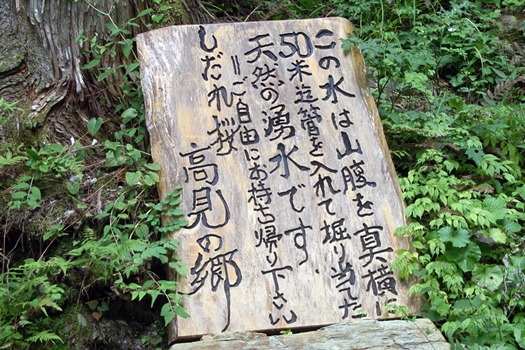 この水は山腹を真横に
50米迄管を入れて掘り当た
天然の湧水です。
ご自由にお持ち帰り下さい
しだれ桜
高見の郷